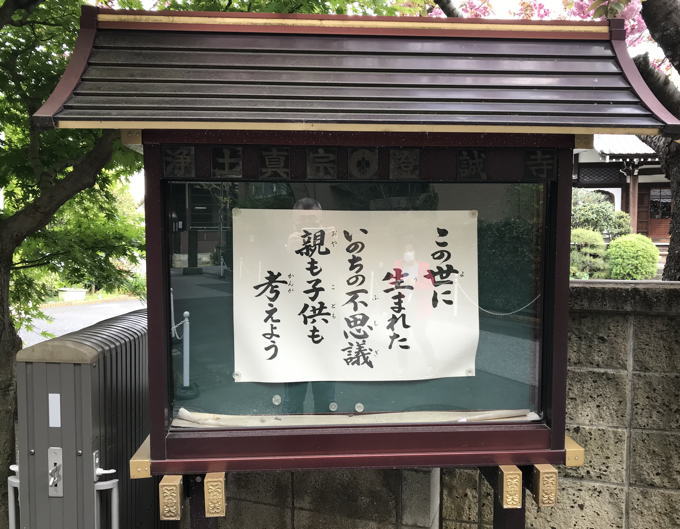 浄土真宗 證誠寺
この世に
生まれた
いのちの不思議
親も子供も
考えよう